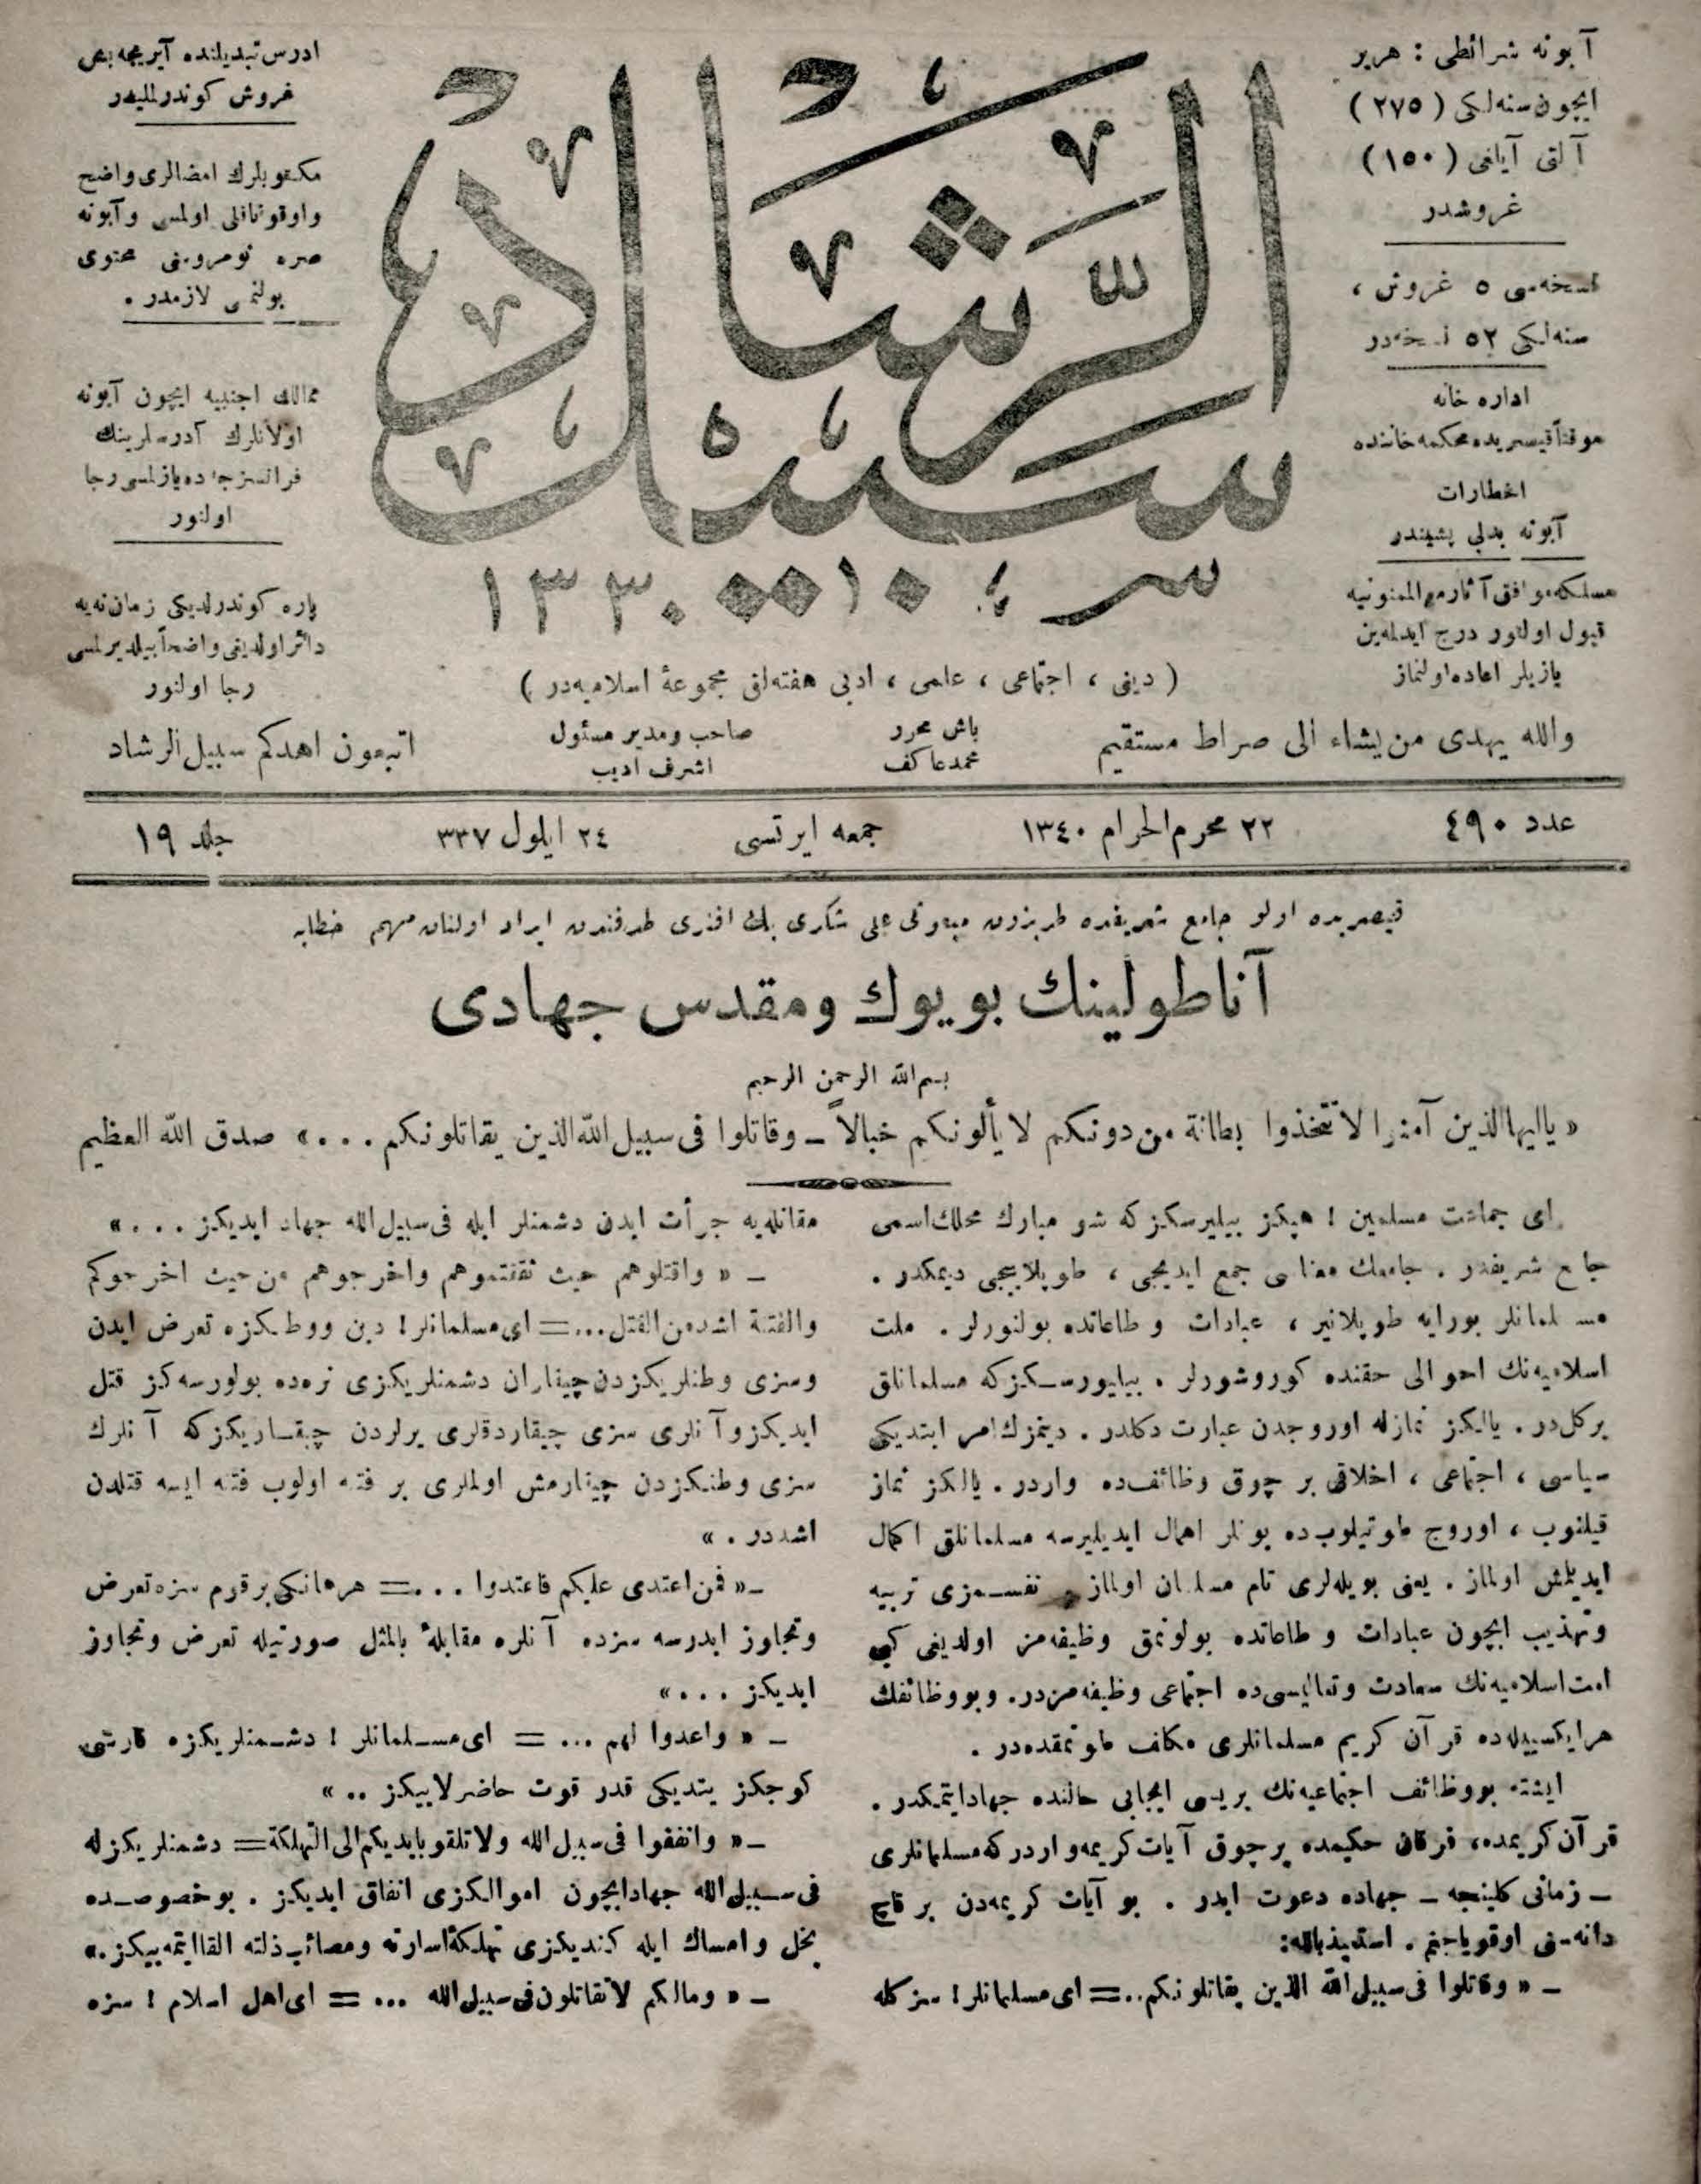 آبونه شرائطى : هریر
ایچون سنه‌لكی ( ٢٧٥ )
آلتی آیلغی ( ١٥٠ )
غروشدر
نسخه‌سی ٥ غروش ،
سنه‌لكی ٥٢ نسخه‌در
اداره خانه
موقتاً قیصریده محكمه خاننده
اخطارات
آبونه بدلی پشیندر
مسلكه موافق آثار مع‌الممنونیه
قبول اولنور درج ایدلمه‌ین
یازیلر اعاده اولنماز
ادرس تبدیلنده آیریجه بش
غروش كوندرلملیدر
مكتوبلرك امضالری واضح
واوقوناقلی اولمسی وآبونه
صره نومروسنی محتوی
بولنمسی لازمدر .
ممالك اجنبیه ایچون آبونه
اولانلرك آدرسلرینك
فرانسزجه‌ده یازلمسی رجا
اولنور
پاره كوندرلدیكی زمان نه‌یه
دائر اولدیغی واضحاً بیلدیرلمسی
رجا اولنور
سبیل الرشاد
سر ١٠ ١٣٣٠
( دینی ، اجتماعی ، علمی ، ادبی هفته‌لق مجموعهٔ اسلامیه‌در )
والله یهدی من یشاء الی صراط مستقیم
باش محرر
محمد عاكف
صاحب ومدیر مسئول
اشرف ادیب
اتبعون اهدكم سبیل الرشاد
عدد ٤٩٠ ٢٢ محرم الحرام ١٣٤٠ جمعه ایرتسی ٢٤ ایلول ٣٣٧ جلد ١٩
قیصریده اولو جامع شریفده طربزون مبعوثی علی شكری بك افندی طرفندن ایراد اولنان مهم خطابه
آناطولینك بویوك ومقدس جهادی
بسم الله الرحمن الرحیم
« یاایها الذین آمنوا لاتتخذوا بطانة من دونكم لایألونكم خبالاً ــ وقاتلوا فی سبیل الله الذین یقاتلونكم . . . » صدق الله العظیم
ای جماعت مسلمین ! هپكز بیلیرسكز كه شو مبارك محلك اسمی
جامع شریفدر . جامعك معناسی جمع ایدیجی ، طوپلاییجی دیمكدر .
مسلمانلر بورایه طوپلانیر ، عبادات و طاعاتده بولنورلر . ملت
اسلامیه‌نك احوالی حقنده كوروشورلر . بیلیورسكز كه مسلمانلق
بر كل‌در . یالكز نمازله اوروجدن عبارت دكلدر . دینمزك امر ایتدیكی
سیاسی ، اجتماعی ، اخلاقی بر چوق وظائف‌ده واردر . یالكز نماز
قیلنوب ، اوروج طوتیلوب‌ده بونلر اهمال ایدیلیرسه مسلمانلق اكمال
ایدیلمش اولماز . یعنی بویله‌لری تام مسلمان اولماز . نفسمزی تربیه
وتهذیب ایچون عبادات و طاعاتده بولونمق وظیفه‌مز اولدیغی كبی
امت اسلامیه‌نك سعادت وتعالیسی‌ده اجتماعی وظیفه‌مزدر. وبو وظائفك
هر ایكسیله‌ده قرآن كریم مسلمانلری مكلف طوتمقده‌در .
ایشته بو وظائف اجتماعیه‌نك بریسی ایجابی حالنده جهاد ایتمكدر .
قرآن كریمده، فرقان حكیمده پر چوق آیات كریمه واردر كه مسلمانلری
ــ زمانی كلینجه ــ جهاده دعوت ایدر . بو آیات كریمه‌دن بر قاچ
دانه‌سنی اوقویاجغم . استعیذ بالله:
ــ « وقاتلوا فی سبیل الله الذین یقاتلونكم..= ای مسلمانلر! سزكله
مقاتله‌یه جرأت ایدن دشمنلر ایله فی سبیل الله جهاد ایدیكز . . . »
ــ « واقتلوهم حیث ثقفتموهم واخرجوهم من حیث اخرجوكم
والفتنة اشد من القتل...= ای مسلمانلر! دین ووطنكزه تعرض ایدن
وسزی وطنلریكزدن چیقاران دشمنلریكزی نره‌ده بولورسه‌كز قتل
ایدیكز وآنلری سزی چیقاردقلری یرلردن چیقاریكز كه آنلرك
سزی وطنكزدن چیقارمش اولملری بر فتنه اولوب فتنه ایسه قتلدن
اشددر . »
ــ « فمن اعتدی علیكم فاعتدوا . . .= هر هانكی بر قوم سزه تعرض
وتجاوز ایدرسه سزده آنلره مقابلهٔ بالمثل صورتیله تعرض وتجاوز
ایدیكز . . . »
ــ « واعدوا لهم ... = ای مسلمانلر ! دشمنلریكزه قارشی
كوجكز یتدیكی قدر قوت حاضرلاییكز .. »
ــ « وانفقوا فی سبیل الله ولاتلقوا بایدیكم الی التهلكة= دشمنلریكزله
فی سبیل الله جهاد ایچون اموالكزی انفاق ایدیكز . بو خصوصده
بخل وامساك ایله كندیكزی تهلكهٔ اسارته ومصائب ذلته القا ایتمه‌ییكز.»
ــ « ومالكم لاتقاتلون فی سبیل الله ... = ای اهل اسلام ! سزه